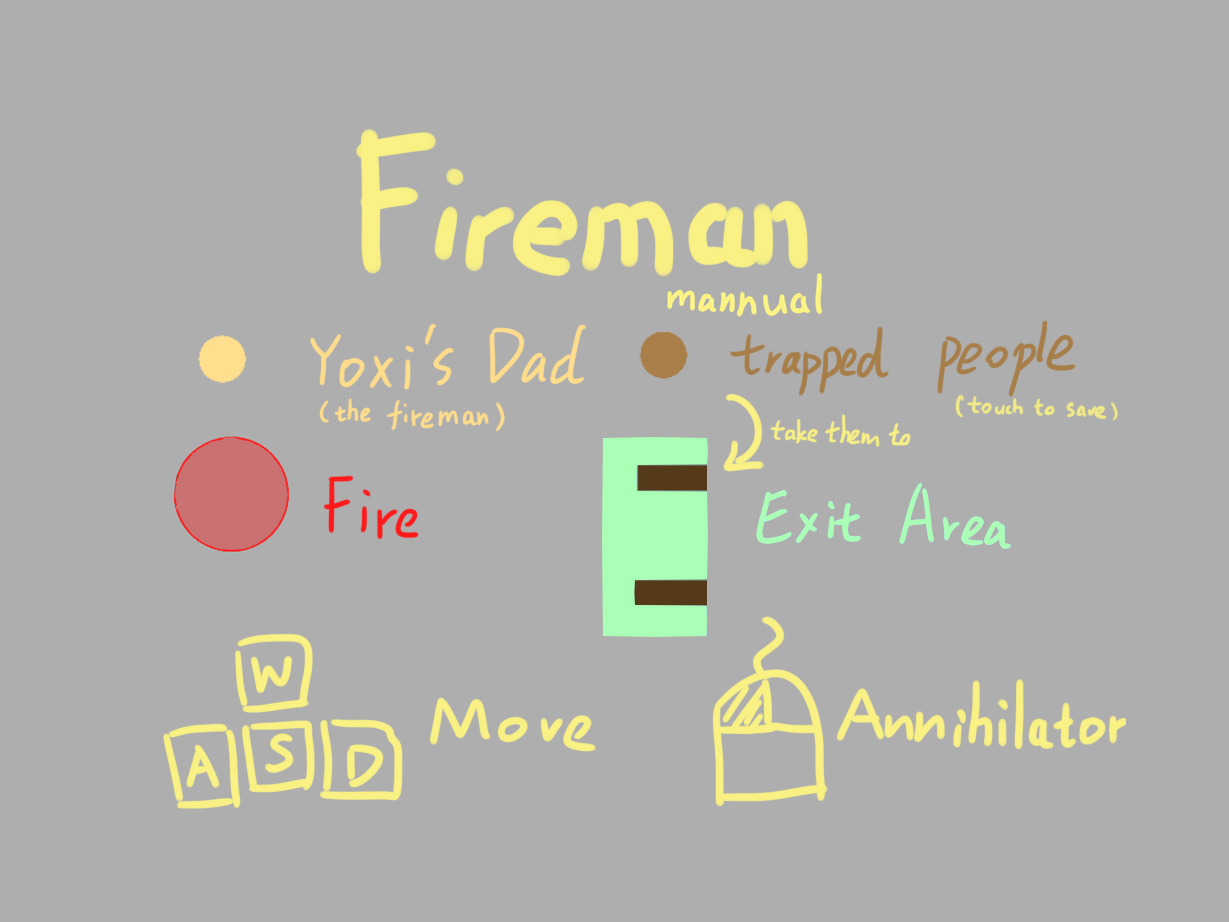 Fireman
mannual
Yoxi's Dad
(the fireman)
trapped people
(touch to save)
take them to
Fire
Exit Area
W
A S D
Move
Annihilator